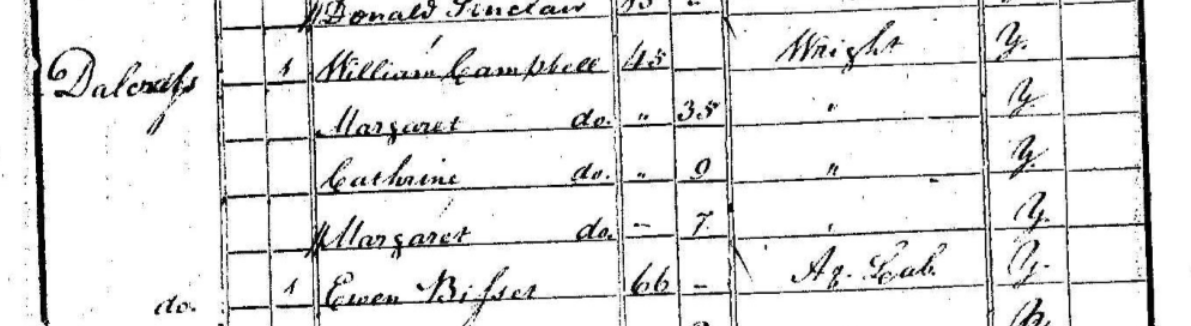 Donald Sinclair
Dalcrafs 1 William Campbell 45 Wright Y.
Margaret do. " 35 " Y
Cathrine do. " 9 " Y.
Margaret do. - 7 " Y.
do. 1 Ewen Bifset 66 - Ag. Lab. Y.